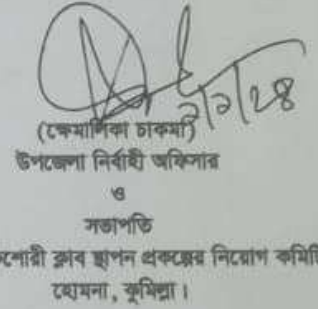 ৭/১/২৪
(ক্ষেমালিকা চাকমা)
উপজেলা নির্বাহী অফিসার
ও
সভাপতি
কশোরী ক্লাব স্থাপন প্রকল্পের নিয়োগ কমিটি
হোমনা, কুমিল্লা।